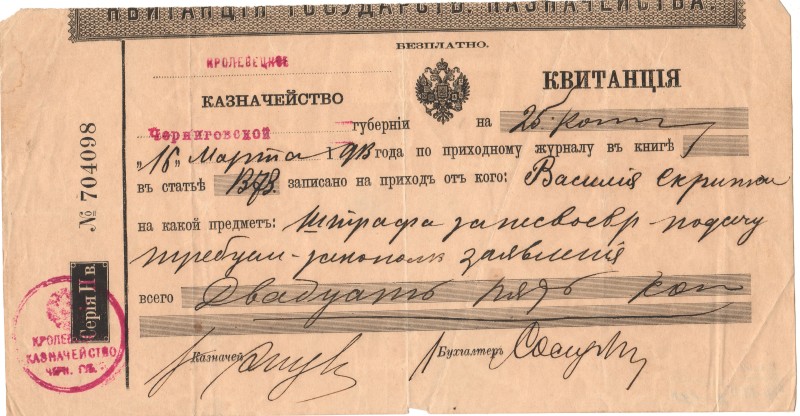 КВИТАНЦІЯ ГОСУДАРСТВ. КАЗНАЧЕЙСТВА.
БЕЗПЛАТНО.
КРОЛЕВЕЦКОЕ
КАЗНАЧЕЙСТВО
КВИТАНЦІЯ
Черниговской губерніи на 25 коп
„16" Марта 1913 года по приходному журналу въ книгѣ
въ статьѣ 1378 записано на приходъ отъ кого: Василія Скрипки
на какой предметъ: Штрафа за несвоевр. подачу
требуем. закономъ заявленія
всего Двадцать пять коп
Казначей
Бухгалтеръ
№ 704098
Серія II в.
КРОЛЕВЕЦ
КАЗНАЧЕЙСТВО
ЧЕРН. ГУБ.